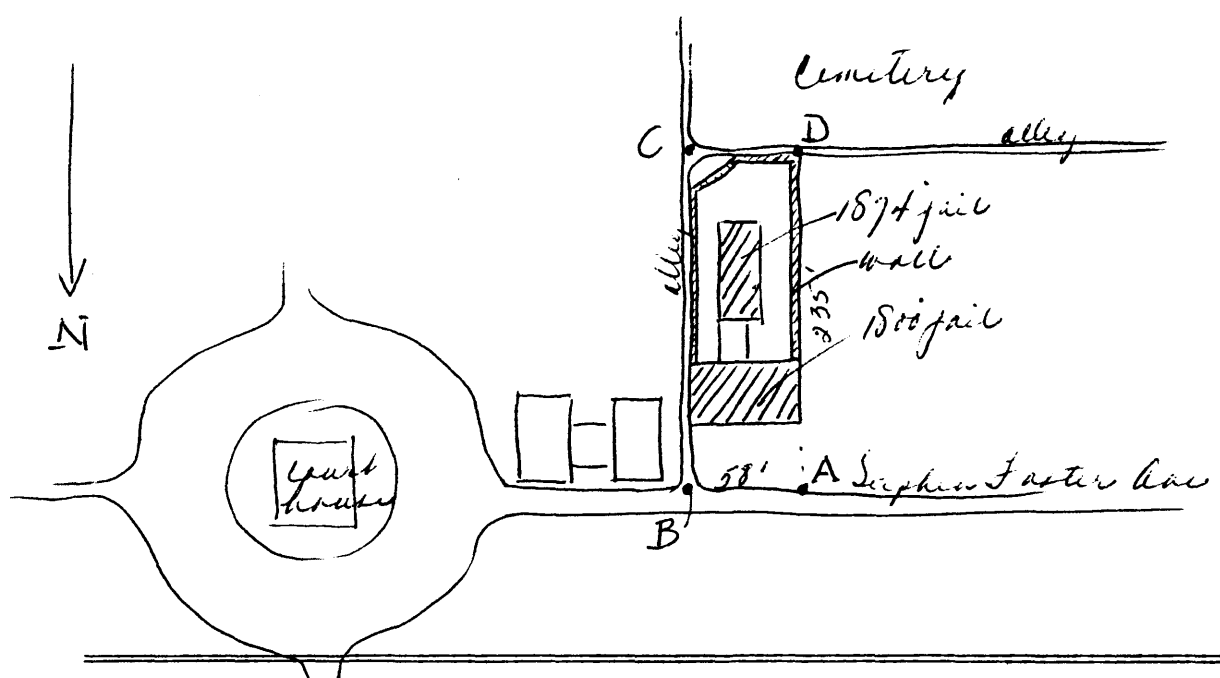 Cemetery
C
D
alley
1874 jail
alley
wall
235'
1800 jail
N
court
house
58'
A
Stephen Foster Ave
B